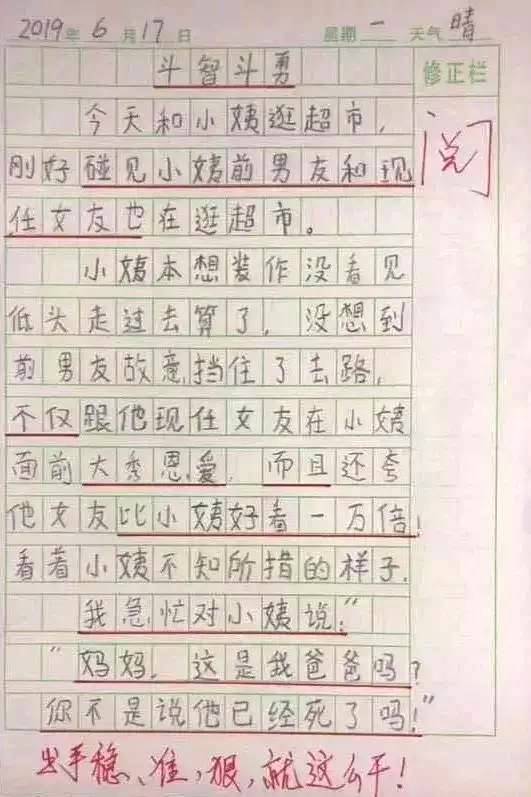 2019年6月17日 星期一 天气晴
斗智斗勇
修正栏
今天和小姨逛超市,
阅
刚好碰见小姨前男友和现
任女友也在逛超市。
小姨本想装作没看见
低头走过去算了,没想到
前男友故意挡住了去路,
不仅跟他现任女友在小姨
面前大秀恩爱,而且还夸
他女友比小姨好看一万倍!
看着小姨不知所措的样子,
我急忙对小姨说:"
"妈妈,这是我爸爸吗?
你不是说他已经死了吗!"
出手稳、准,狠,就这么干!